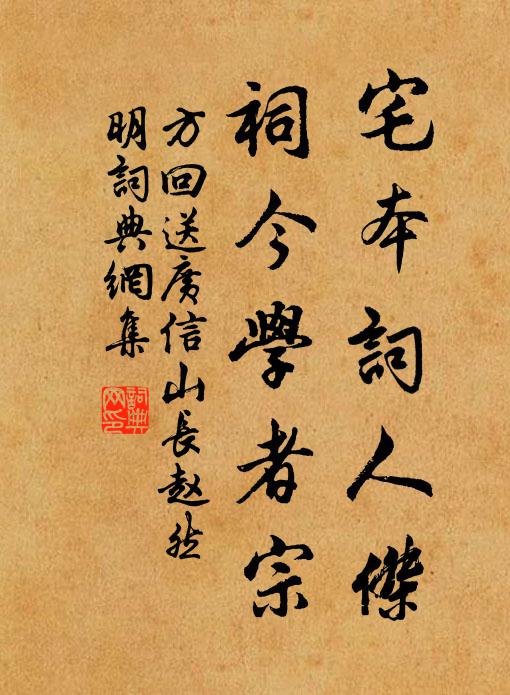 宅本詞人傑
祠今學者宗
方回送廣信山長赵然
明詞典網集
詞典
网印